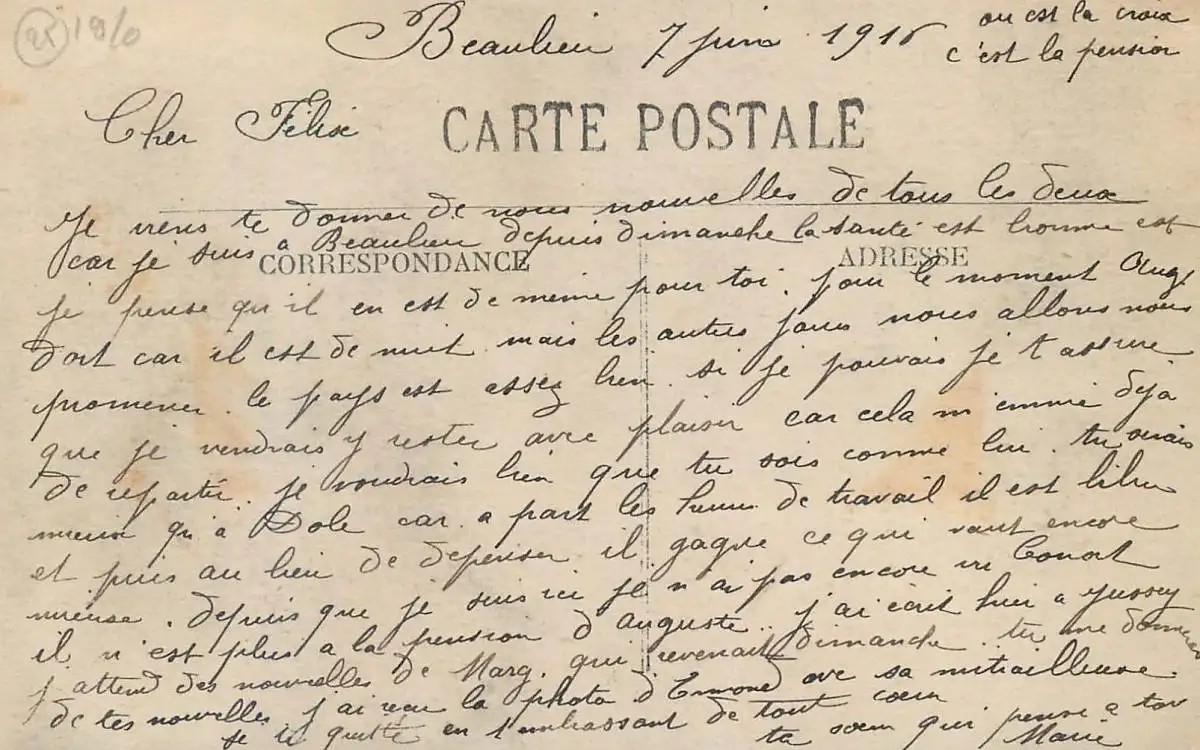 25 1910
Beaulieu 7 juin 1916
ou est la croix
c'est la pension
Cher Félix
CARTE POSTALE
Je viens te donner de nous nouvelles de tous les deux
car je suis a Beaulieu depuis dimanche la santé est bonne est
CORRESPONDANCE
ADRESSE
je pense qu'il en est de meme pour toi. pour le moment Aug.
dort car il est de nuit mais les autres jours nous allons nous
promener. le pays est assez bien. si je pouvais je t'assure
que je vendrais y rester avec plaisir car cela m'ennuie déjà
de repartir. je voudrais bien que tu sois comme lui. tu serais
mieux qu'à Dole car a part les heures de travail il est libre
et puis au lieu de depenser il gagne ce qui vaut encore
mieux. depuis que je suis ici je n'ai pas encore vu
il n'est plus a la pension d'auguste. j'ai écrit hier a Jussey
j'attend des nouvelles de Marg. qui revenait dimanche. tu me donneras
de tes nouvelles j'ai reçu la photo d'Edmond ave sa mitrailleuse
je te quitte en t'embrassant de tout coeur
ta soeur qui pense a toi
Marie